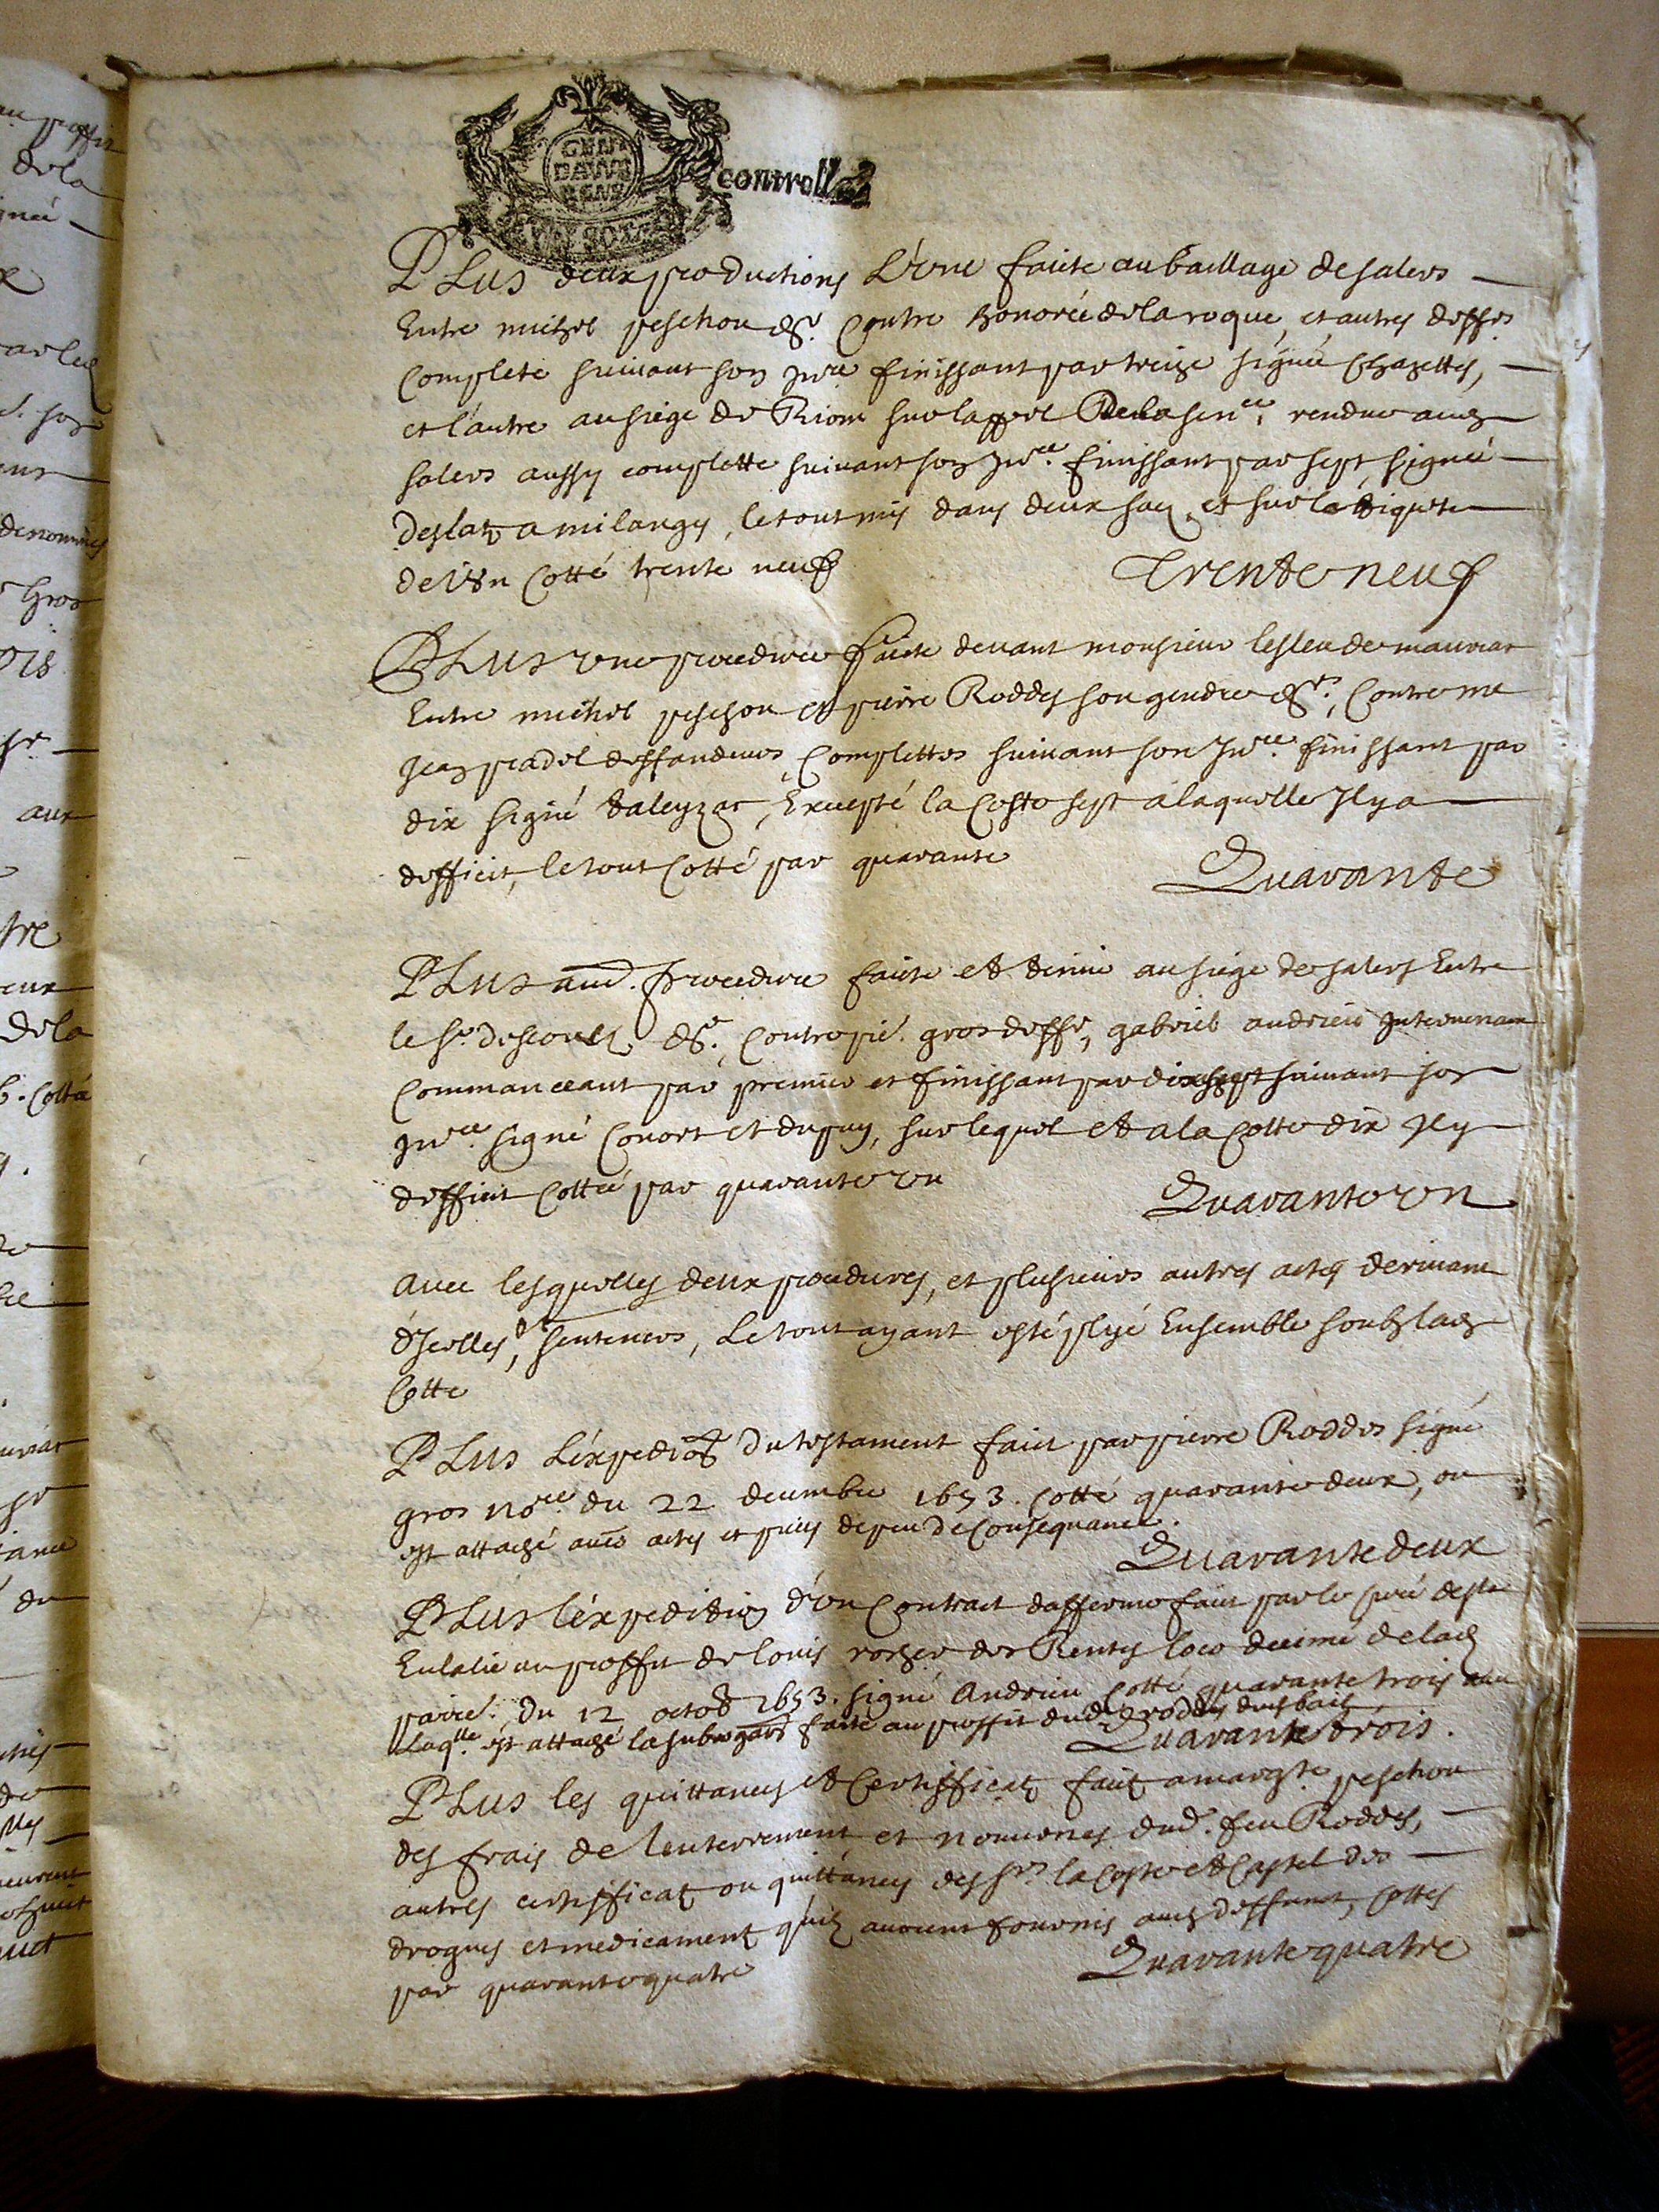 GEN
DAWR
controll
PLus deux productions L'vne faicte au baillage de salers
Entre michel peschou dr. Contre honorée delaroque, et autres deffrs
Complete suiuant son Inre finissant par treize signée Chazettes,
et l'autre au siege de Riom sur lappel De la sence. rendue aud
salers aussy complette suiuant son Inre. finissant par sept, signée
Deslatz a milangy, le tout mis dans deux sacz, et sur la ettiquete
de l'vn Cotté trente neuf
Trente neuf
PLus vne procedure faicte deuant monsieur lesleu de mauriac
Entre michel peschou et pierre Roddes son gendre drs., Contre me
Jean pradel deffandeurs, Complettes suiuant son Inre. finissant par
dix signé daleyzac, Excepté la Cotte sept a laquelle Il y a
defficit, le tout Cotté par quarante
Quarante
PLus au. procedure faicte et au siege de salers Entre
le sr. descoutz dr. Contre pie. gros deffr, gabriel andrieu Interuenant
Commanceant par premier et finissant par dix sept suiuant son
Inre. signé Conort et dupuy, sur lequel et a la Cotte dix Il y
defficit Cottée par quarante vn
Quarante vn
auec lesquelles deux procedures, et plusieurs autres actes deriuant
d'Jcelles, et sentences, Le tout ayant esté plyé Ensemble soubz lad
Cotte
PLus L'expedion Du testament faict par pierre Roddes signé
gros nore du 22 decembre 1653. Cotté quarante deux, ou
est attaché autres actes et pieces de peu de Consequance.
Quarante deux
PLus l'expedition d'vn Contract dafferme faict par le curé de ste
Eulalie au proffit de louis rozier des Rentes loco decimé de lad
parre. Du 12 octob 1653. signé Andrieu Cotté quarante trois a
Laqlle est attaché la subrogaon faite au proffit dud Roddes dud bail
Quarante trois.
PLus les quittances et Certifficatz faitz a margte peschou
des frais de l'enterrement et nouuenes dud. feu Roddes,
autres certifficatz ou quittances des srs la Coste et Castel des
drogues et medicamentz qu'ilz auoient fournis aud deffunct, Cottés
par quarante quatre
Quarante quatre